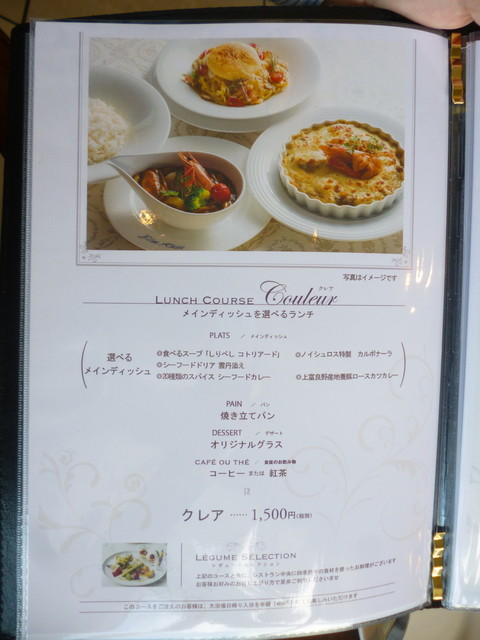 写真はイメージです
クレア
LUNCH COURSE Couleur
メインディッシュを選べるランチ
PLATS ／ メインディッシュ
選べる
メインディッシュ
食べるスープ「しりべし コトリアード」
シーフードドリア 雲丹添え
20種類のスパイス シーフードカレー
ノイシュロス特製 カルボナーラ
上富良野産地養豚ロースカツカレー
PAIN ／ パン
焼き立てパン
DESSERT ／ デザート
オリジナルグラス
CAFÉ OU THÉ ／ 食後のお飲み物
コーヒー または 紅茶
クレア …… 1,500円(税別)
LÉGUME SÉLECTION
レギュームセレクション
上記のコースと共に、レストラン中央に四季折々の食材を使ったお料理がございます
お客様お好みのお召し上がり方で是非ご利用くださいませ
このコースをご注文のお客様は、大浴場日帰り入浴を半額